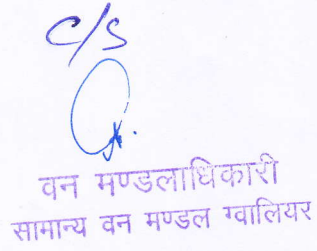 C/S
वन मण्डलाधिकारी
सामान्य वन मण्डल ग्वालियर